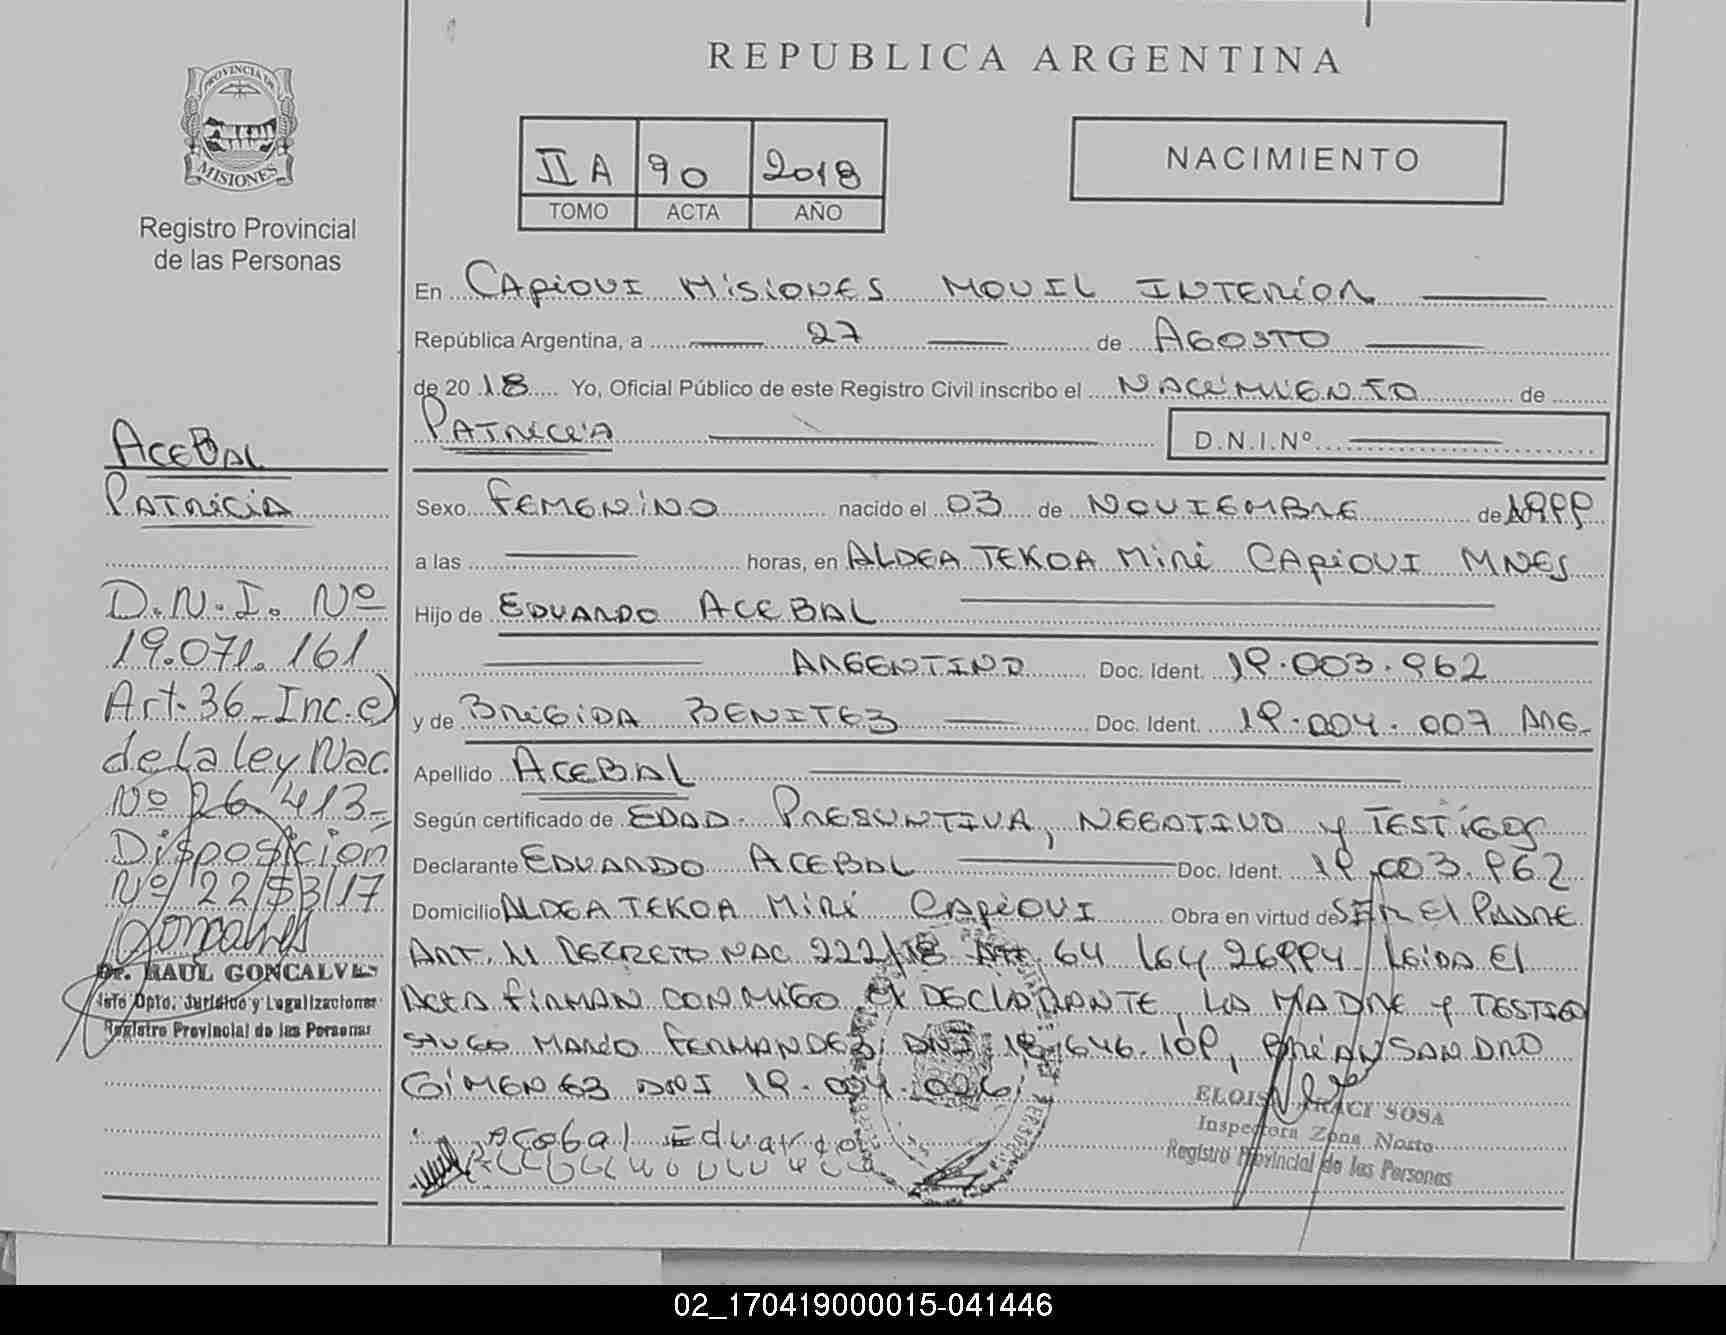 PROVINCIA DE
MISIONES
Registro Provincial
de las Personas
REPUBLICA ARGENTINA
II A 90 2018
TOMO ACTA AÑO
NACIMIENTO
En CAPIOVI MISIONES MOVIL INTERIOR
República Argentina, a 27 de AGOSTO
de 20 18 Yo, Oficial Público de este Registro Civil inscribo el NACIMIENTO de
PATRICIA
D.N.I.Nº
Sexo FEMENINO nacido el 03 de NOVIEMBRE de 1999
a las horas, en ALDEA TEKOA MIRI CAPIOVI MNES
Hijo de EDUARDO ACEBAL
ARGENTINO Doc. Ident. 19.003.962
y de BRIGIDA BENITEZ Doc. Ident. 19.004.007 ARG.
Apellido ACEBAL
Según certificado de EDAD PRESUNTIVA, NEGATIVO y TESTIGOS
Declarante EDUARDO ACEBAL Doc. Ident. 19.003.962
Domicilio ALDEA TEKOA MIRI CAPIOVI Obra en virtud de SER El PADRE
ART. 11 DECRETO NAC 222/18 Art. 64 ley 26994 leida El
Acta firman conmigo El DECLARANTE, LA MADRE y TESTIGO
HUGO MARIO FERNANDEZ DNI 18.646.109, BRIAN SANDRO
GIMENEZ DNI 19.004.026
Acebal Eduardo
ELOISA SOSA
Inspectora Zona Norte
Registro Provincial de las Personas
ACEBAL
PATRICIA
D.N.I. Nº
19.071.161
Art. 36 Inc. e)
de la ley Nac.
Nº 26.413-
Disposición
Nº 2253/17
Goncalves
Dr. RAUL GONCALVES
Jefe Dpto. Jurídico y Legalizaciones
Registro Provincial de las Personas
02_170419000015-041446